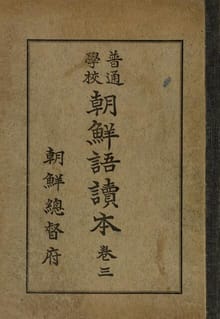 普通學校 朝鮮語讀本 卷三
朝鮮總督府